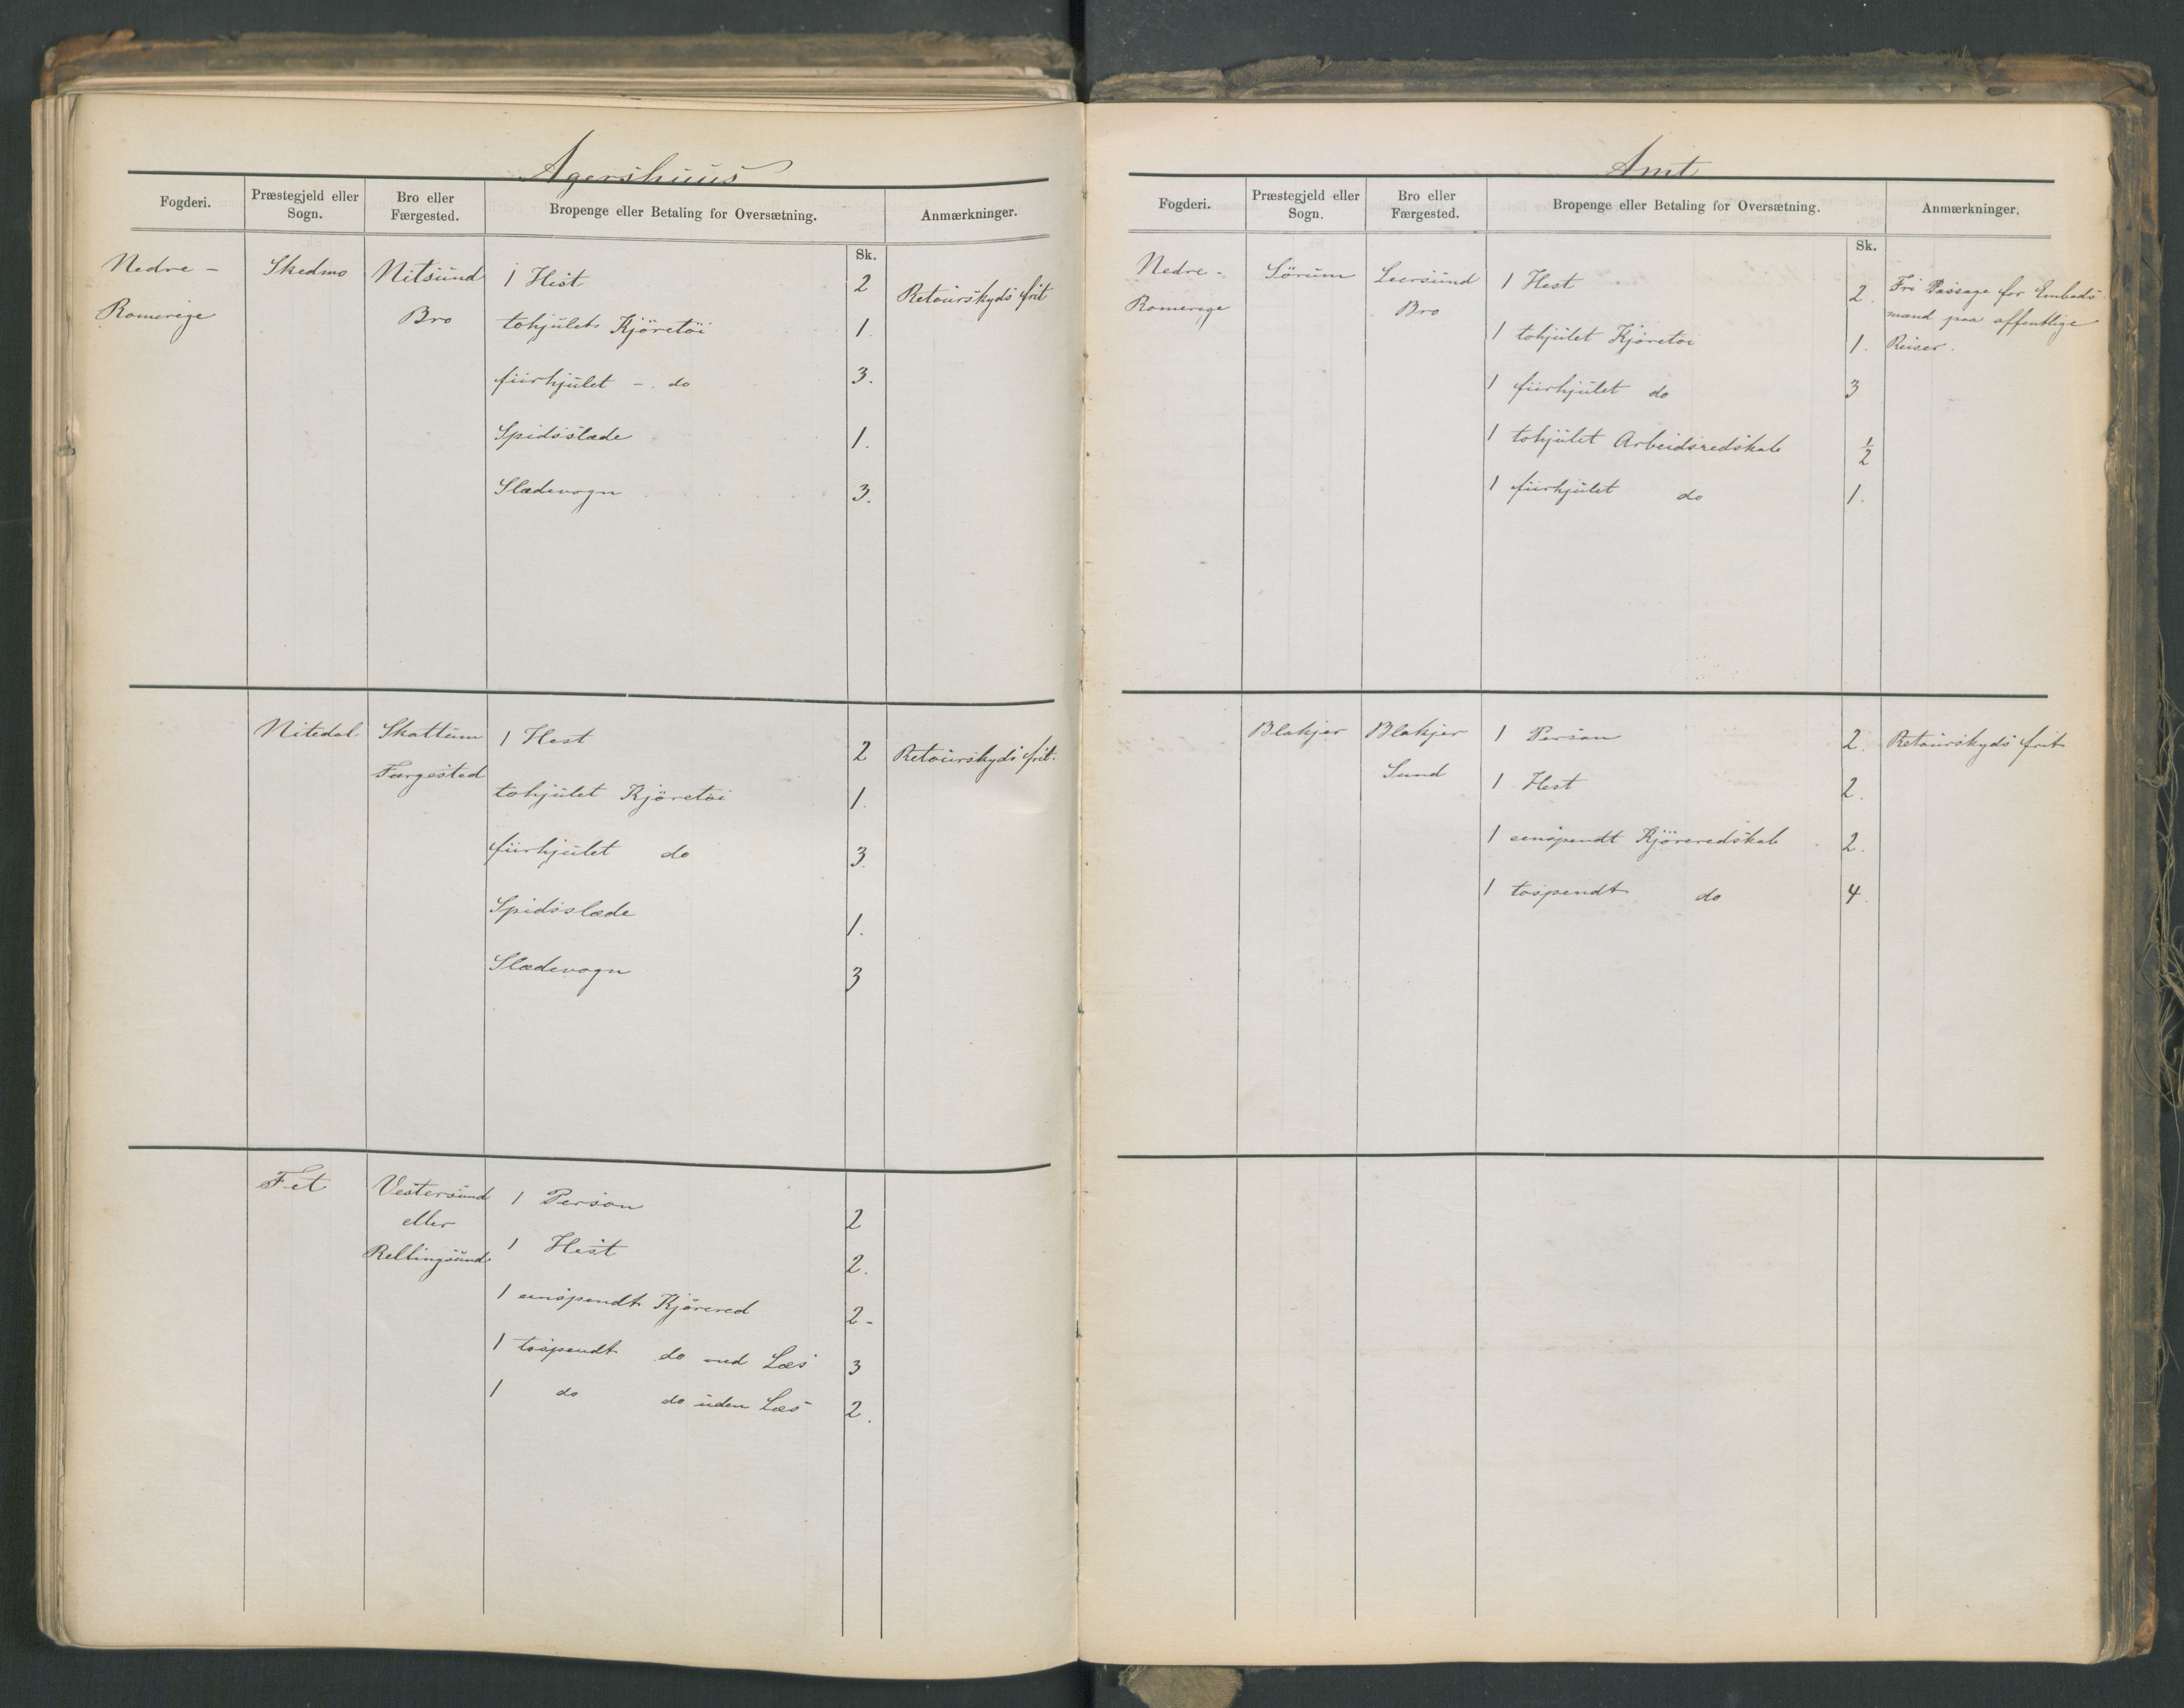 Agershuus
Fogderi.
Præstegjeld eller
Sogn.
Bro eller
Færgested.
Bropenge eller Betaling for Oversætning.
Anmærkninger.
Sk.
Nedre - Skedmo Nitsund 1 Hest 2 Retourskyds frit
Romerige Bro tohjulet Kjöretöi 1.
fiirhjulet - do 3.
Spidsslæde 1.
Slædevogn 3.
Nitedal Skattum 1 Hest 2 Retourskyds frit.
Færgested tohjulet Kjöretöi 1.
fiirhjulet do 3.
Spidsslæde 1.
Slædevogn 3
Fet Vestersund 1 Person 2
eller
Rellingsund 1 Hest 2.
1 eenspendt Kjörered 2-
1 tospendt do med Læs 3
1 do do uden Læs 2.
Amt
Fogderi.
Præstegjeld eller
Sogn.
Bro eller
Færgested.
Bropenge eller Betaling for Oversætning.
Anmærkninger.
Sk.
Nedre - Sörum Leersund 1 Hest 2. Fri Passage for Embeds-
Romerige Bro mænd paa offentlige
1 tohjulet Kjöretöi 1. Reiser.
1 fiirhjulet do 3
1 tohjulet Arbeidsredskab ½
1 fiirhjulet do 1.
Blakjer Blakjer 1 Person 2. Retourskyds frit
Sund 1 Hest 2.
1 eenspendt Kjöreredskab 2.
1 tospendt do 4.